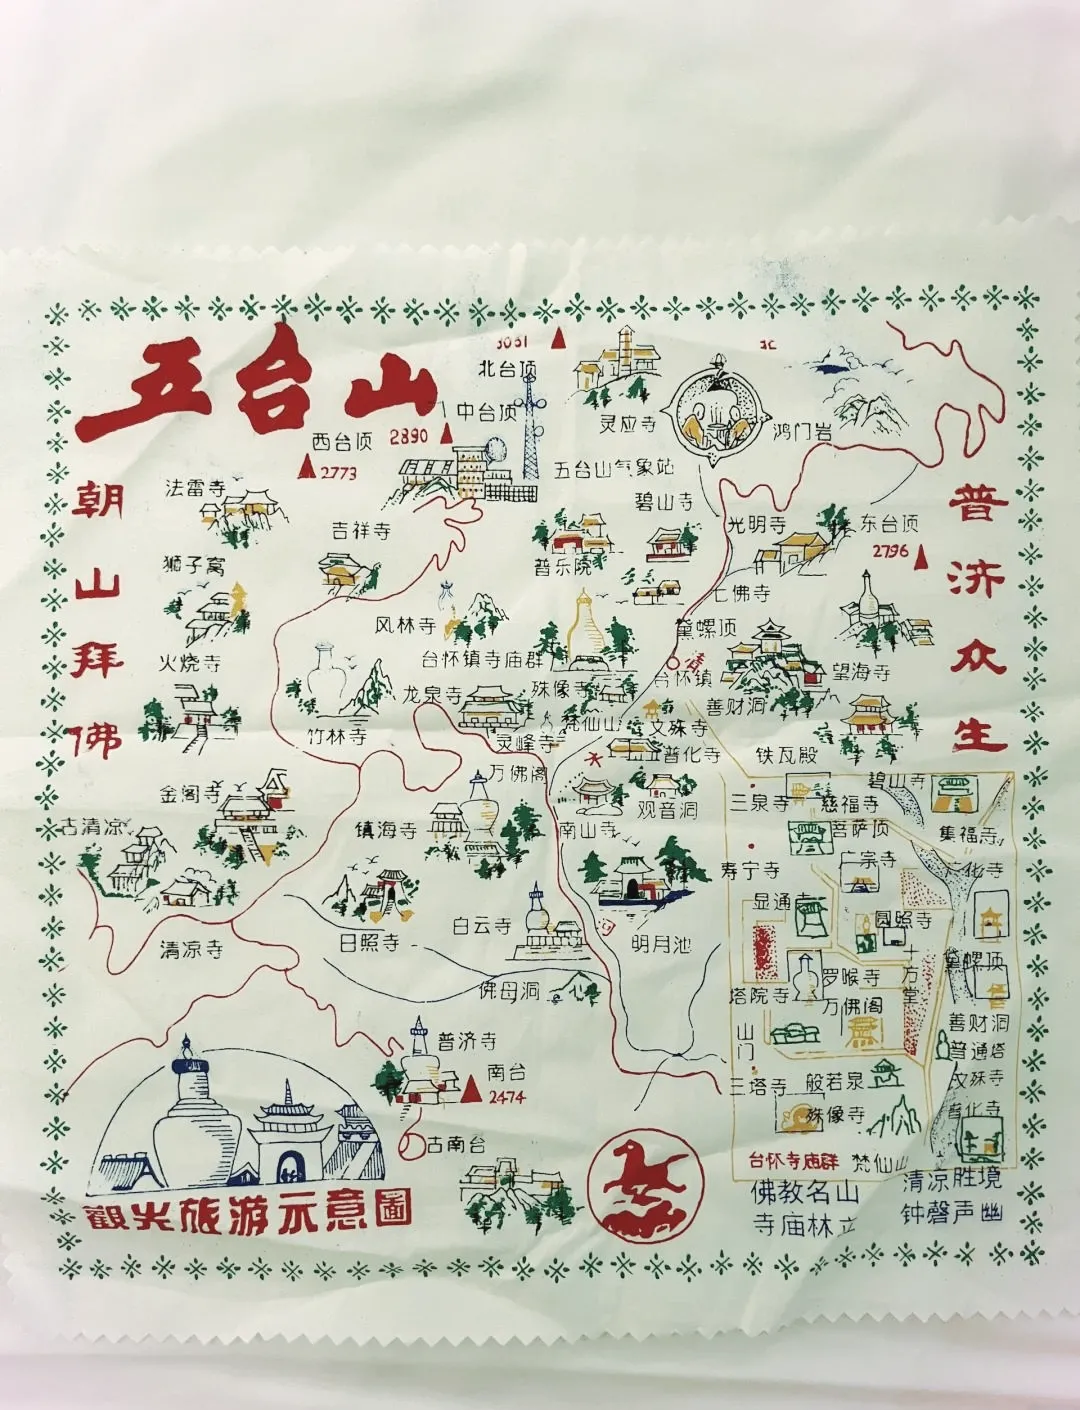 五台山
朝山拜佛
普济众生
3061
北台顶
中台顶
西台顶
2890
2773
灵应寺
北
鸿门岩
五台山气象站
法雷寺
吉祥寺
碧山寺
光明寺
东台顶
2796
狮子窝
普乐院
七佛寺
风林寺
黛螺顶
火烧寺
台怀镇寺庙群
台怀镇
望海寺
龙泉寺
殊像寺
善财洞
竹林寺
灵峰寺
梵仙山
文殊寺
普化寺
铁瓦殿
万佛阁
金阁寺
观音洞
南山寺
古清凉
镇海寺
清凉寺
日照寺
白云寺
明月池
佛母洞
普济寺
南台
2474
古南台
三泉寺
慈福寺
碧山寺
菩萨顶
集福寺
寿宁寺
广宗寺
广化寺
显通寺
圆照寺
十方堂
黛螺顶
塔院寺
罗睺寺
万佛阁
善财洞
山门
普通塔
三塔寺
般若泉
文殊寺
殊像寺
普化寺
台怀寺庙群
梵仙山
佛教名山
寺庙林立
清凉胜境
钟磬声幽
觀光旅游示意圖